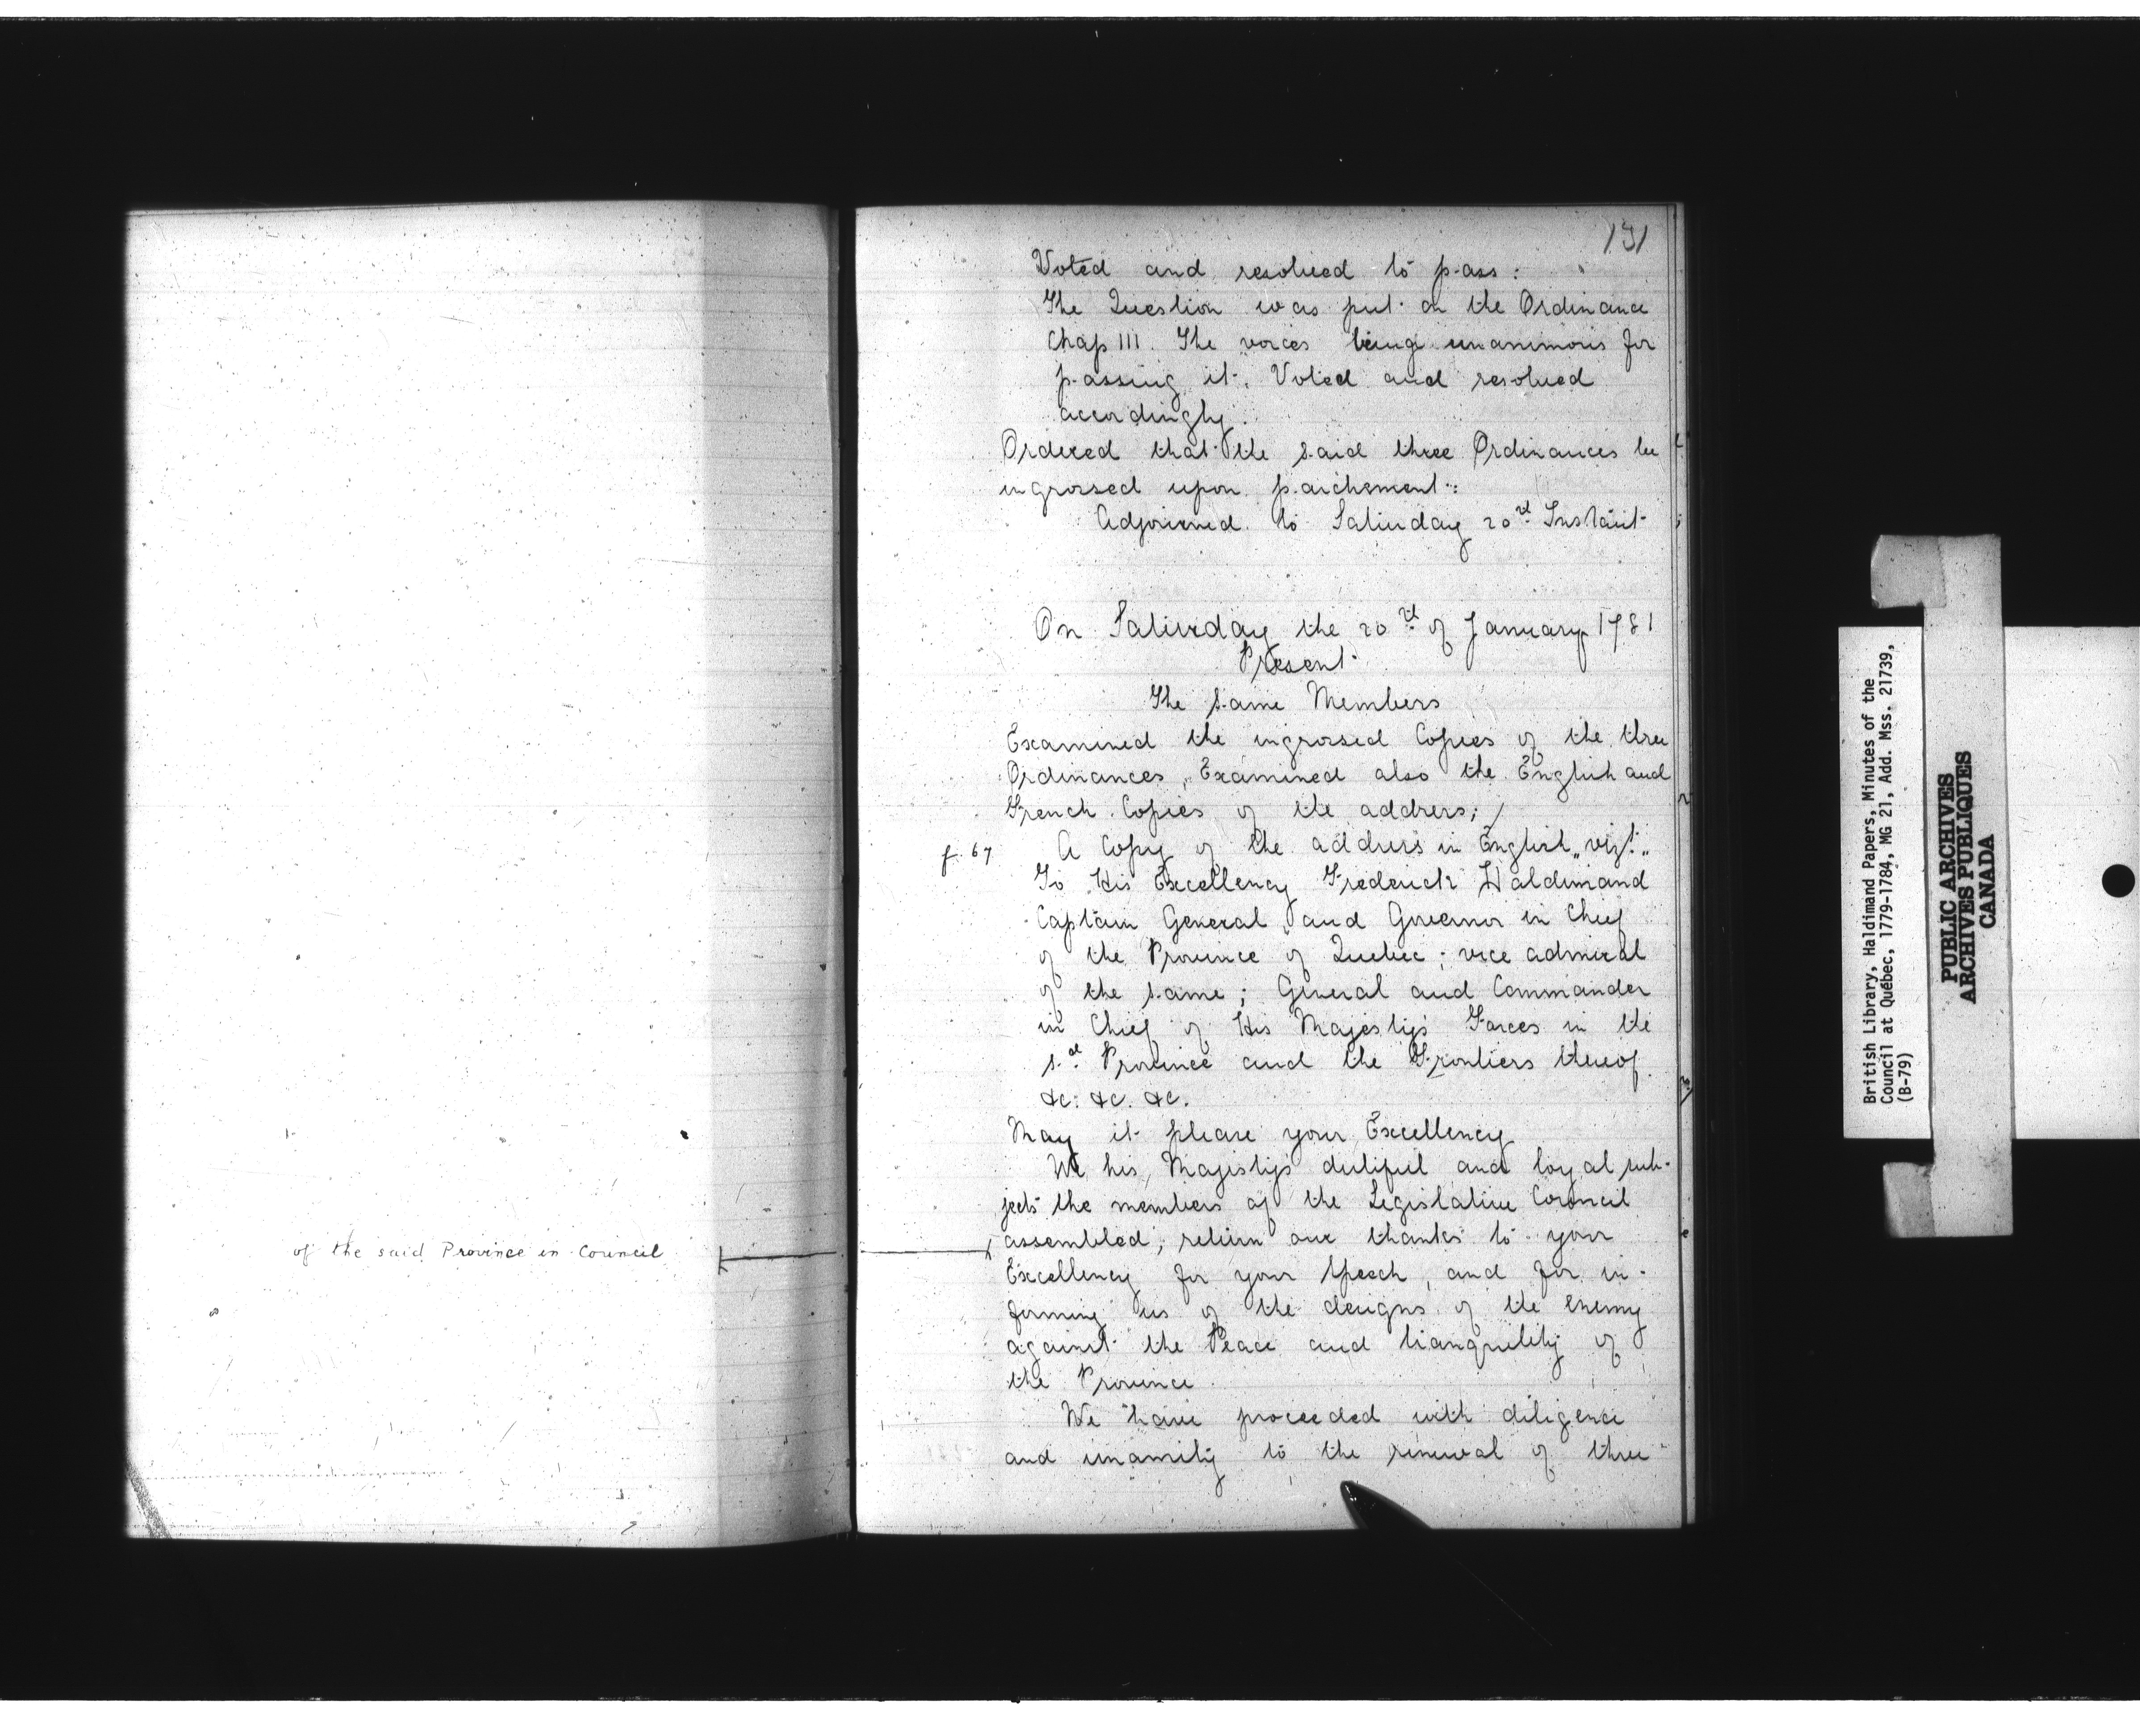 131
Voted and resolved to pass:
The Question was put on the Ordinance
Chap III. The voices being unanimous for
passing it. Voted and resolved
accordingly.
Ordered that the said three Ordinances be
ingrossed upon parchement:
Adjourned to Saturday 20th Instant
On Saturday the 20th of January 1781
Present
The same Members
Examined the ingrossed Copies of the three
Ordinances, Examined also the English and
French Copies of the address;
f. 67
A Copy of the address in English „vizt„
To His Excellency Frederick Haldimand
Captain General and Governor in Chief
of the Province of Quebec; vice admiral
of the same; General and Commander
in Chief of His Majesty's Forces in the
sd Province and the Frontiers thereof
&c: &c. &c.
May it please your Excellency
We his Majesty's dutiful and loyal sub-
jects the members of the Legislative Council
of the said Province in Council
assembled; return our thanks to your
Excellency for your Speech, and for in-
forming us of the designs of the Enemy
against the Peace and tranquility of
the Province
We have proceeded with diligence
and unamity to the renewal of three
British Library, Haldimand Papers, Minutes of the
Council at Québec, 1779-1784, MG 21, Add. Mss. 21739,
(B-79)
PUBLIC ARCHIVES
ARCHIVES PUBLIQUES
CANADA